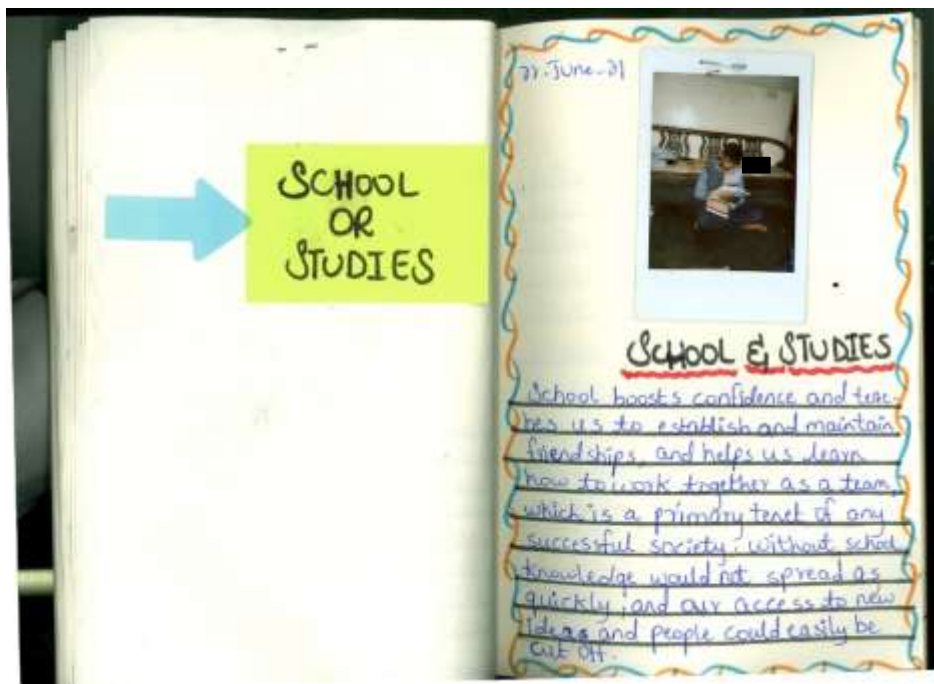 SCHOOL
OR
STUDIES
June-21
SCHOOL & STUDIES
School boosts confidence and teac-
hes us to establish and maintain
friendships, and helps us learn
how to work together as a team,
which is a primary tenet of any
successful society. without school
knowledge would not spread as
quickly, and our access to new
ideas and people could easily be
cut off.